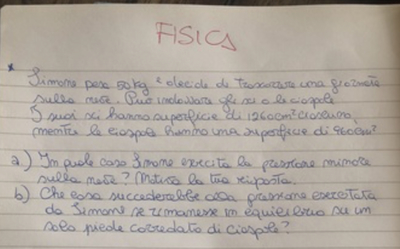 FISICA
* Simone pesa 50 kg e decide di trascorrere una giornata
sulla neve. Può indossare gli sci o le ciaspole
I suoi sci hanno superficie di 1260cm² ciascuno,
mentre le ciaspole hanno una superficie di 960cm²
a) In quale caso Simone esercita la pressione minore
sulla neve? Motiva la tua risposta.
b) Che cosa succederebbe alla pressione esercitata
da Simone se rimanesse in equilibrio su un
solo piede corredato di ciaspole?